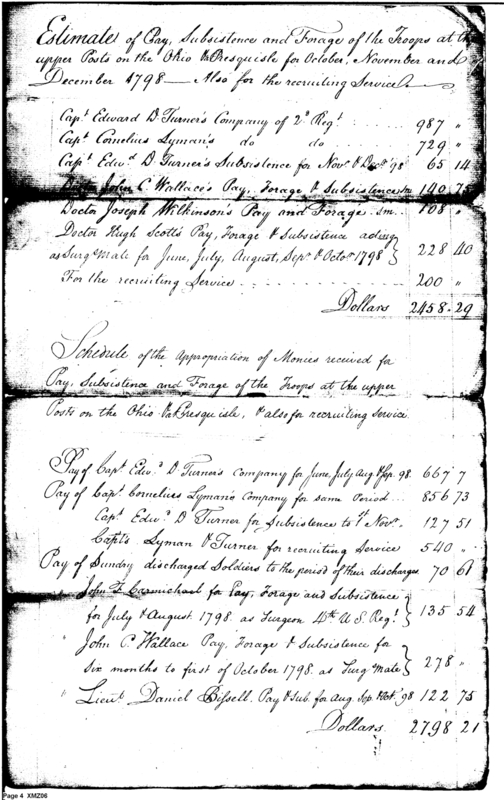 Estimate of Pay, Subsistence and Forage of the Troops at the
upper Posts on the Ohio & Presquisle for October, November and
December 1798 — Also for the recruiting Service —
Capt. Edward D. Turner's Company of 2d Regt. 987 "
Capt. Cornelius Lyman's do do 729 "
Capt. Edwd. D. Turner's Subsistence for Novr. & Decr. 98 65 14
Doctor John C. Wallace's Pay, Forage & Subsistence 3m 140 75
Doctor Joseph Wilkinson's Pay and Forage 3m 108 "
Doctor Hugh Scott's Pay, Forage & Subsistence acting
as Surgs. Mate for June, July, August, Sepr. & Octor. 1798 } 228 40
For the recruiting Service 200 "
Dollars 2458.29
Schedule of the Appropriation of Monies received for
Pay, Subsistence and Forage of the Troops at the upper
Posts on the Ohio & Presquisle, & also for recruiting Service
Pay of Capt. Edwd. D Turner's Company for June, July, Aug. & Sep. 98. 667 7
Pay of Capt. Cornelius Lyman's Company for same Period 856 73
Capt. Edwd. D Turner for Subsistence to 1st Novr. 127 51
Capts. Lyman & Turner for recruiting Service 540 "
Pay of Sundry discharged Soldiers to the period of their discharges 70 61
John F. Carmichael for Pay, Forage and Subsistence
for July & August 1798. as Surgeon 4th U S. Regt. } 135 54
" John C. Wallace Pay, Forage & Subsistence for
Six months to first of October 1798. as Surgs. Mate } 278 "
" Lieut. Daniel Bissell. Pay & Sub. for Aug. Sep. & Oct. 98 122 75
Dollars 2798 21
Page 4 XMZ06